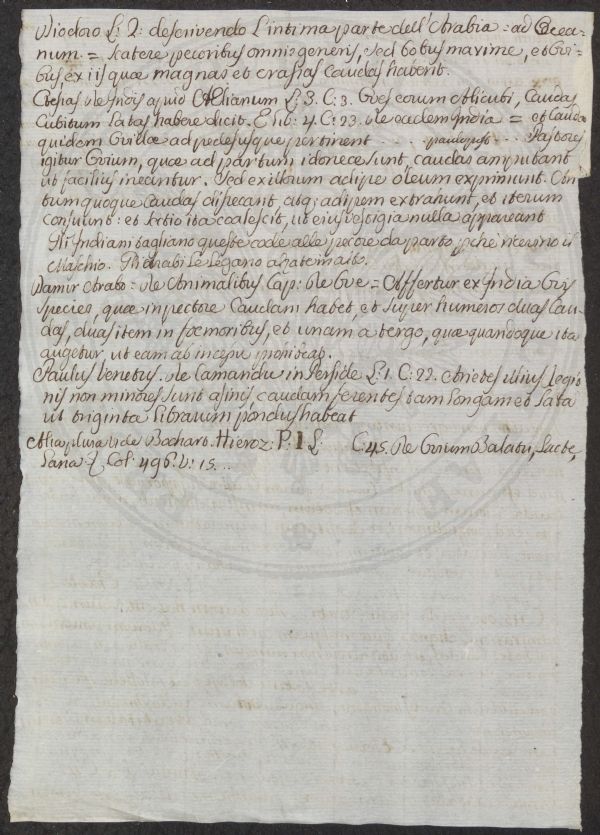 Diodoro L: 2: descrivendo L'intima parte dell'Arabia = ad Ocea-
num = scatere pecoribus omnis generis, sed bobus maxime, et ovi-
bus, ex iis quæ magnas et crassas caudas haberit.
Ctesias de Indis apud Ælianum L. 3. C: 3. Oves eorum alicubi, Caudas
Cubitum latas habere dicit. E lib: 4. C: 23. de eadem India = et Caudæ
quidem Ovillæ ad pedes usque pertinent .... paulo post .... Pastores
igitur Ovium, quæ ad partum idoneæ sunt, caudas amputant
ut facilius ineantur. Sed ex illarum adipe oleum exprimunt.
tum quoque Caudas dissecant, atq; adipem extrahunt, et iterum
consuunt: et sectio ita coalescit, ut eius vestigia nulla appareant
Gl'Indiani tagliano queste code alle pecore da parto, pche ricevino il
Maschio. Gl'Arabi Le Legano
Damir Arabo = de Animalibus Cap: de Ove = Affertur ex India Ovis
species, quæ in pectore Caudam habet, et super humeros duas Cau-
das, duas item in foemoribus, et unam a tergo, quæ quandoque ita
augetur, ut eam ab incessu prohibeat.
Paulus Venetus. de Camandu in Perside L. 1 C: 22. Arietes illius Regio
nis non minores sunt asinis, caudam ferentes tam longam et Lata
ut triginta librarum pondus habeat
Alia plura vide Bochart. Hieroz: P: I L: C: 45. de Ovium Balatu, Lacte,
Lana & Col: 496. V: 15...